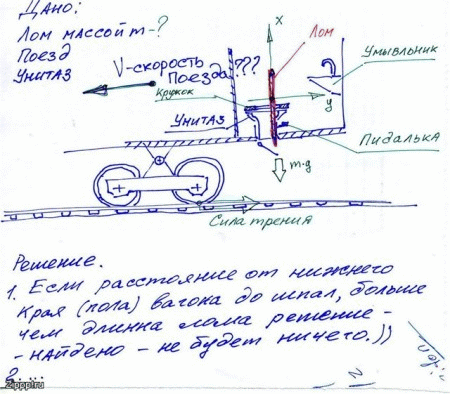 Дано:
Лом массой m-?
Поезд
Унитаз
V-скорость
Поезда
???
x
Лом
Умывльник
Кружок
y
Унитаз
Пидалька
m·g
Сила трения
Решение.
1. Если расстояние от нижнего
края (пола) вагока до шпал, больше
чем длинна лома решение -
- найдено - не будет ничего.))
2. ...
Zippp.ru